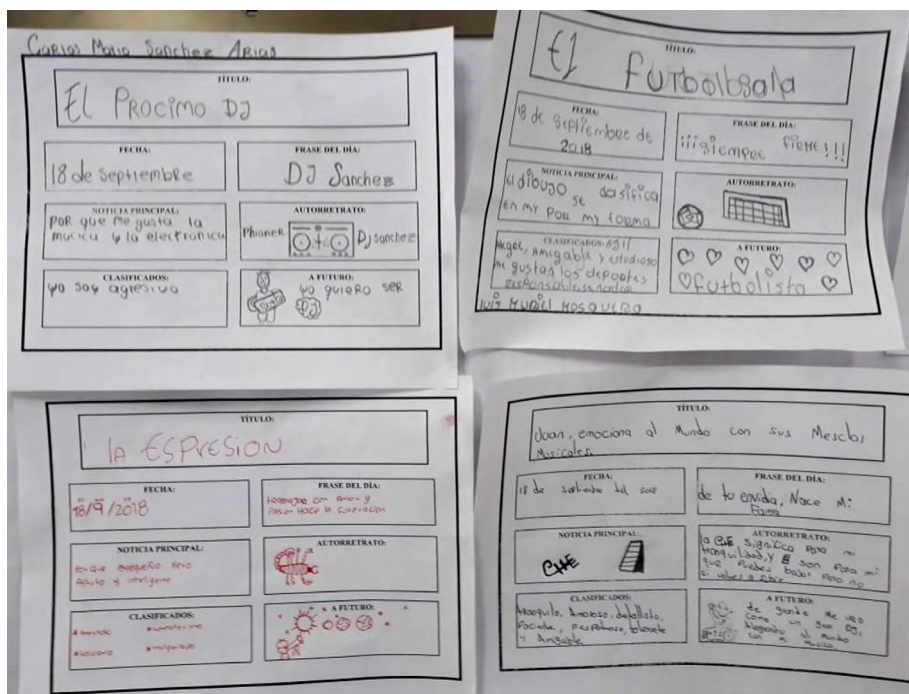 Carlos Mario Sanchez Arias
TÍTULO:
El Procimo DJ
FECHA:
18 de septiembre
FRASE DEL DÍA:
DJ Sanchez
NOTICIA PRINCIPAL:
por que me gusta la
mucica y la electronica
AUTORRETRATO:
Phioner DJ sanchez
CLASIFICADOS:
yo soy agresivo
A FUTURO:
yo quiero ser
DJ
TÍTULO:
El Futbolsala
FECHA:
18 de septiembre de
2018
FRASE DEL DÍA:
¡¡¡siempre firme!!!
NOTICIA PRINCIPAL:
el dibujo se
en my por my forma
AUTORRETRATO:
CLASIFICADOS:
Amigable y estudioso
me gustas los deportes
responsable
A FUTURO:
futbolista
Luis Muriel Mosquera
TÍTULO:
lA ESPreSION
FECHA:
18/9/2018
FRASE DEL DÍA:
con amor y
pasion hace la
NOTICIA PRINCIPAL:
porque pequeño pero
astuto y inteligene
AUTORRETRATO:
CLASIFICADOS:
A FUTURO:
TÍTULO:
Juan, emociona al Mundo con sus Mesclas
Musicales.
FECHA:
18 de del 2018
FRASE DEL DÍA:
de tu envidia, Nace Mi
Fama
NOTICIA PRINCIPAL:
CHE
AUTORRETRATO:
la CHE significa para mi
tranquilidad, y son para mi
que puedes bajar pero no
si subes
CLASIFICADOS:
tranquilo, Amoroso, detallista,
Paciente, respetuoso, tolerante
y Amigable
A FUTURO:
de grande me veo
como un gran DJ,
Alegrando al mundo
con mi musica.